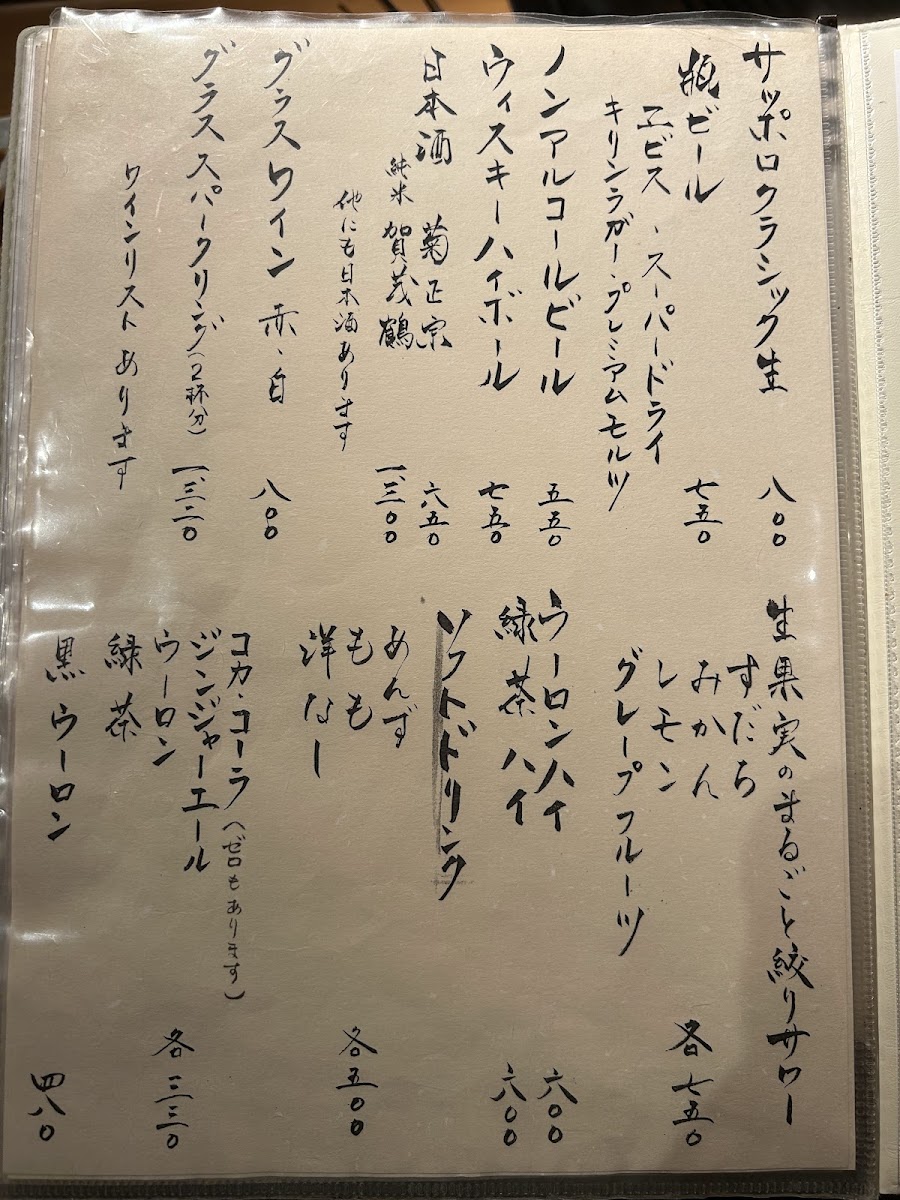 サッポロクラシック生 八〇〇
瓶ビール 七五〇
エビス・スーパードライ
キリンラガー・プレミアムモルツ
ノンアルコールビール 五五〇
ウィスキーハイボール 七五〇
日本酒 菊正宗 六五〇
純米 賀茂鶴 一、三〇〇
他にも日本酒あります
グラスワイン 赤、白 八〇〇
グラススパークリング(2杯分) 一、三二〇
ワインリストあります
生果実のまるごと絞りサワー
すだち
みかん
レモン 各七五〇
グレープフルーツ
ウーロンハイ 六〇〇
緑茶ハイ 六〇〇
ソフトドリンク
あんず
もも 各五〇〇
洋なし
コカ・コーラ(ゼロもあります)
ジンジャーエール
ウーロン 各三三〇
緑茶
黒ウーロン 四八〇